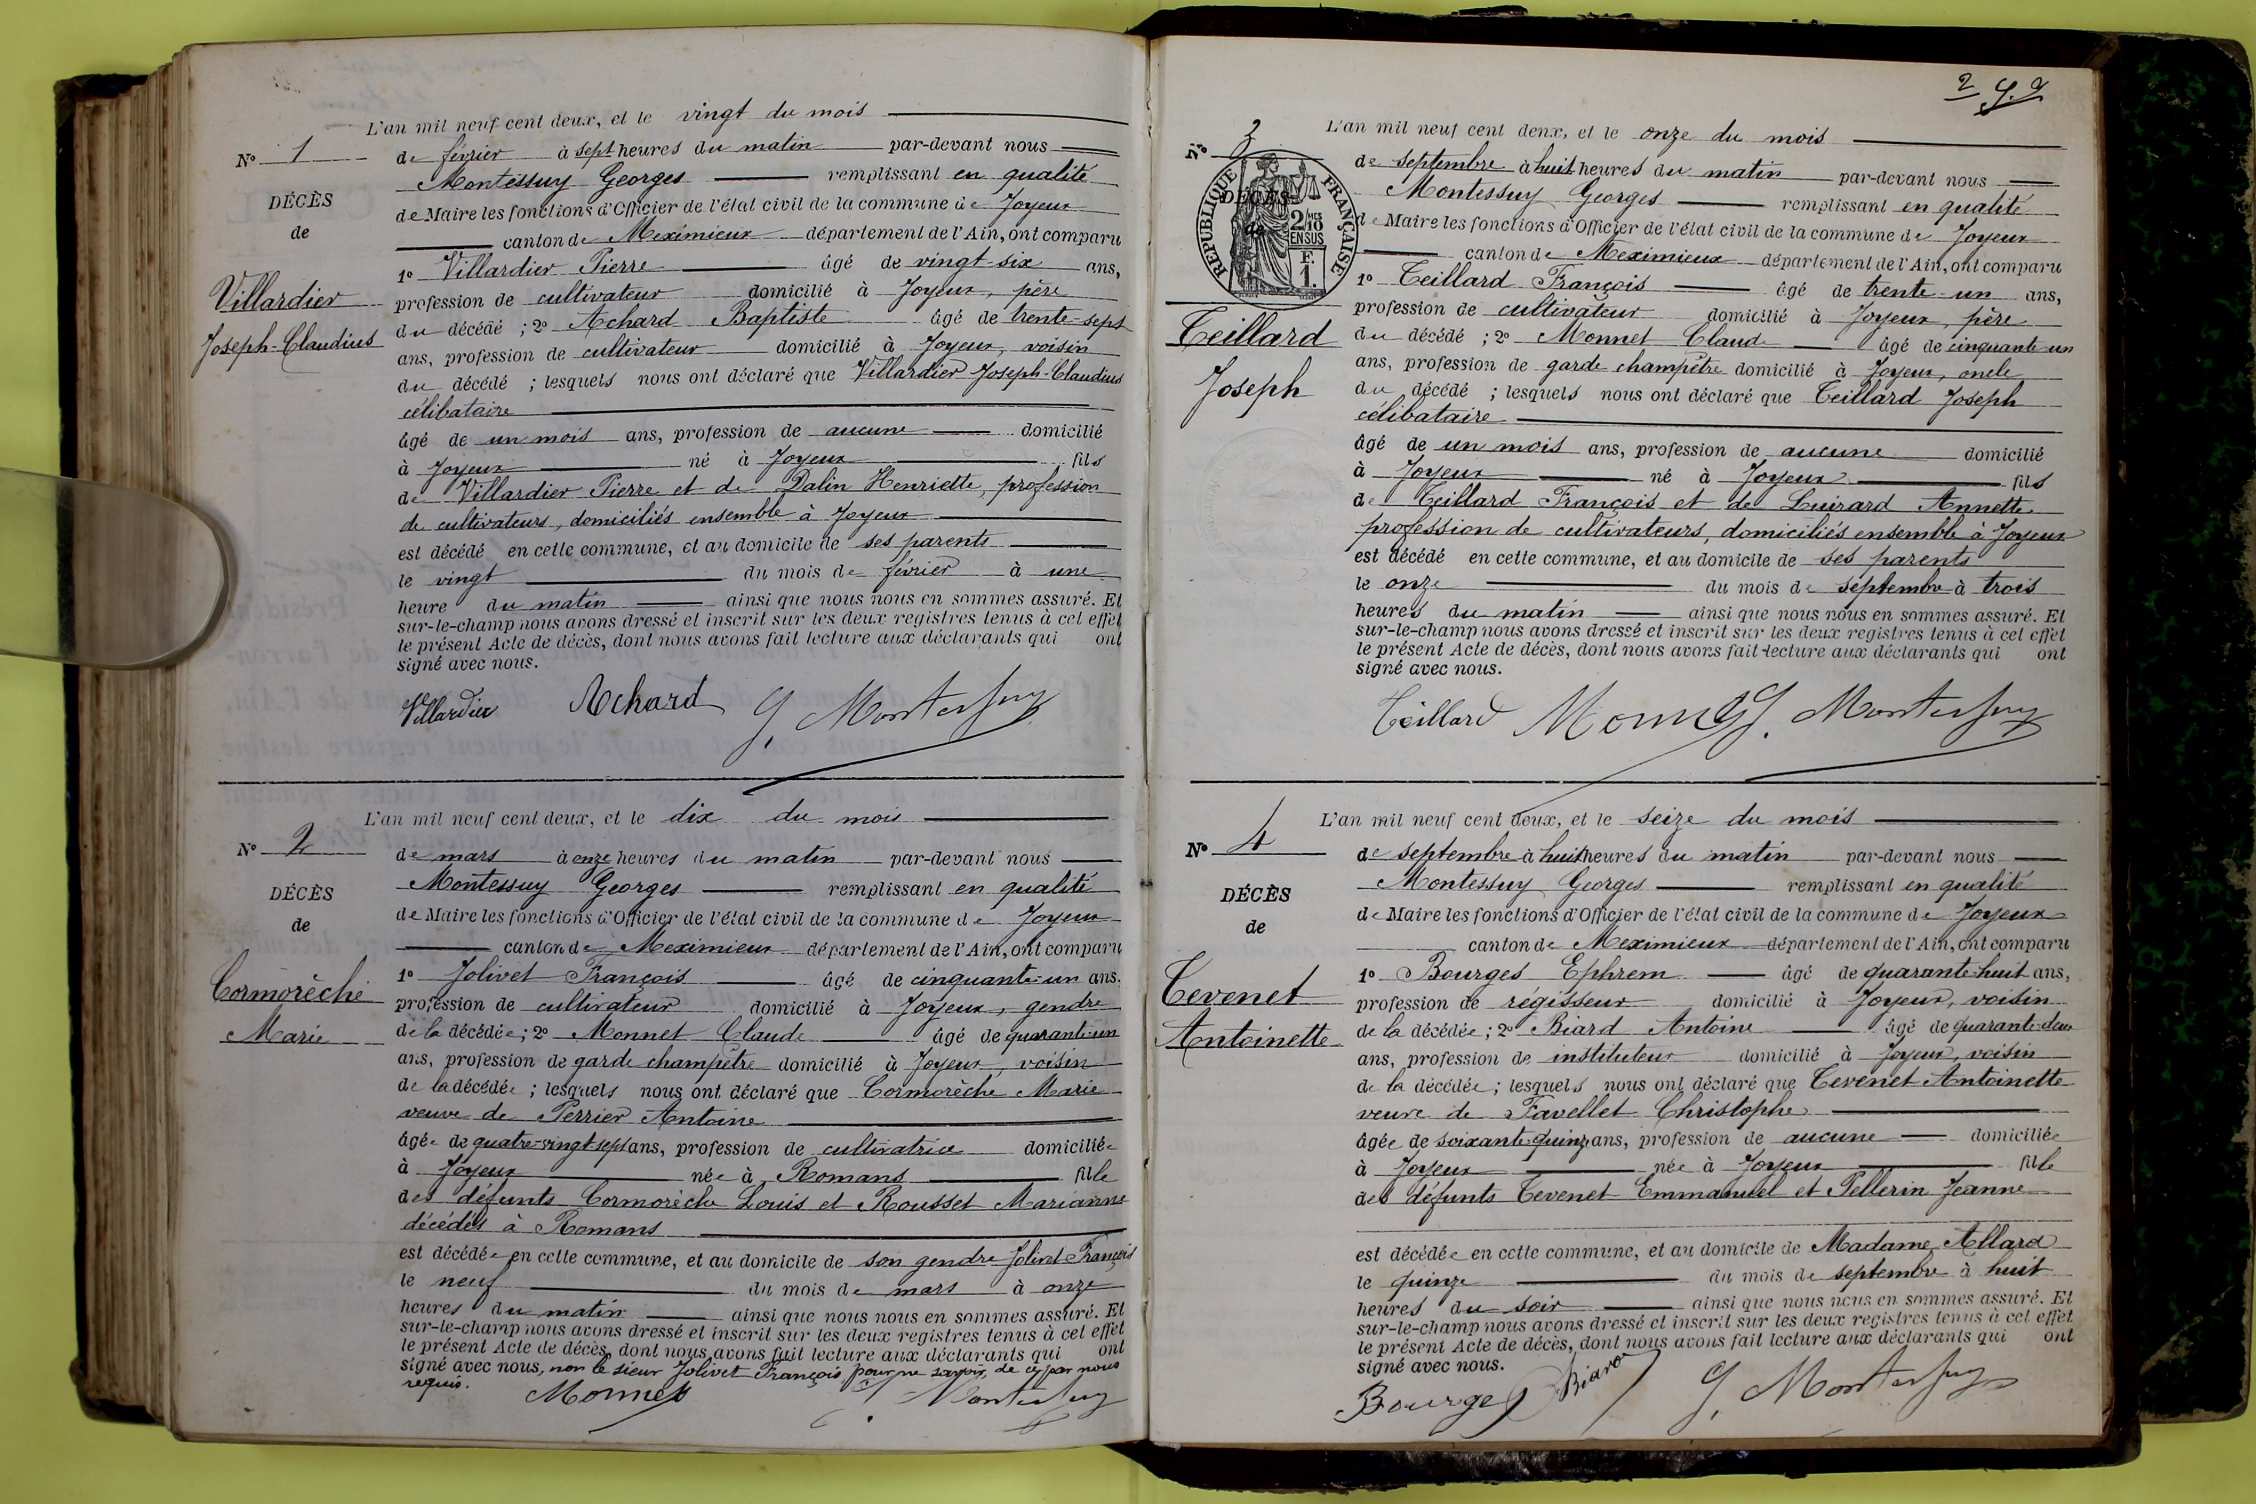 L'an mil neuf cent deux, et le vingt du mois
N° 1 de février à sept heures du matin par-devant nous
Montessuy Georges remplissant en qualité
DÉCÈS
de Maire les fonctions d'Officier de l'état civil de la commune de Joyeux
de
canton de Meximieux département de l'Ain, ont comparu
1° Villardier Pierre âgé de vingt-six ans,
Villardier
profession de cultivateur domicilié à Joyeux, père
du décédé ; 2° Achard Baptiste âgé de trente-sept
Joseph-Claudius
ans, profession de cultivateur domicilié à Joyeux, voisin
du décédé ; lesquels nous ont déclaré que Villardier Joseph-Claudius
célibataire
âgé de un mois ans, profession de aucune domicilié
à Joyeux né à Joyeux fils
de Villardier Pierre et de Dalin Henriette, profession
de cultivateurs, domiciliés ensemble à Joyeux
est décédé en cette commune, et au domicile de ses parents
le vingt du mois de février à une
heure du matin ainsi que nous nous en sommes assuré. Et
sur-le-champ nous avons dressé et inscrit sur les deux registres tenus à cet effet
le présent Acte de décès, dont nous avons fait lecture aux déclarants qui ont
signé avec nous.
Villardier Achard G. Montessuy
L'an mil neuf cent deux, et le dix du mois
N° 2 de mars à onze heures du matin par-devant nous
Montessuy Georges remplissant en qualité
DÉCÈS
de Maire les fonctions d'Officier de l'état civil de la commune de Joyeux
de
canton de Meximieux département de l'Ain, ont comparu
1° Jolivet François âgé de cinquante-un ans.
Cormorèche
profession de cultivateur domicilié à Joyeux, gendre
de la décédée ; 2° Monnet Claude âgé de quarante-un
Marie
ans, profession de garde champêtre domicilié à Joyeux, voisin
de la décédée ; lesquels nous ont déclaré que Cormorèche Marie
veuve de Perrier Antoine
âgée de quatre-vingt-sept ans, profession de cultivatrice domiciliée
à Joyeux née à Romans fille
des défunts Cormorèche Louis et Rousset Marianne
décédés à Romans
est décédée en cette commune, et au domicile de son gendre Jolivet François
le neuf du mois de mars à onze
heures du matin ainsi que nous nous en sommes assuré. Et
sur-le-champ nous avons dressé et inscrit sur les deux registres tenus à cet effet
le présent Acte de décès, dont nous avons fait lecture aux déclarants qui ont
signé avec nous, non le sieur Jolivet François pour ne savoir, de ce par nous
requis.
Monnet G. Montessuy
2
L'an mil neuf cent deux, et le onze du mois
N° 3 de septembre à huit heures du matin par-devant nous
Montessuy Georges remplissant en qualité
DÉCÈS
RÉPUBLIQUE FRANÇAISE
2/10 MES
EN SUS
F.
1.
de Maire les fonctions d'Officier de l'état civil de la commune de Joyeux
de
canton de Meximieux département de l'Ain, ont comparu
1° Teillard François âgé de trente-un ans,
profession de cultivateur domicilié à Joyeux, père
Teillard
du décédé ; 2° Monnet Claude âgé de cinquante-un
ans, profession de garde champêtre domicilié à Joyeux, oncle
Joseph
du décédé ; lesquels nous ont déclaré que Teillard Joseph
célibataire
âgé de un mois ans, profession de aucune domicilié
à Joyeux né à Joyeux fils
de Teillard François et de Luirard Annette
profession de cultivateurs, domiciliés ensemble à Joyeux
est décédé en cette commune, et au domicile de ses parents
le onze du mois de septembre à trois
heures du matin ainsi que nous nous en sommes assuré. Et
sur-le-champ nous avons dressé et inscrit sur les deux registres tenus à cet effet
le présent Acte de décès, dont nous avons fait lecture aux déclarants qui ont
signé avec nous.
Teillard Monnet G. Montessuy
L'an mil neuf cent deux, et le seize du mois
N° 4 de septembre à huit heures du matin par-devant nous
Montessuy Georges remplissant en qualité
DÉCÈS
de Maire les fonctions d'Officier de l'état civil de la commune de Joyeux
de
canton de Meximieux département de l'Ain, ont comparu
1° Bourges Ephrem âgé de quarante-huit ans,
Tevenet
profession de régisseur domicilié à Joyeux, voisin
de la décédée ; 2° Biard Antoine âgé de quarante-deux
Antoinette
ans, profession de instituteur domicilié à Joyeux, voisin
de la décédée ; lesquels nous ont déclaré que Tevenet Antoinette
veuve de Favellet Christophe
âgée de soixante-quinze ans, profession de aucune domiciliée
à Joyeux née à Joyeux fille
des défunts Tevenet Emmanuel et Pellerin Jeanne
est décédée en cette commune, et au domicile de Madame Allard
le quinze du mois de septembre à huit
heures du soir ainsi que nous nous en sommes assuré. Et
sur-le-champ nous avons dressé et inscrit sur les deux registres tenus à cet effet
le présent Acte de décès, dont nous avons fait lecture aux déclarants qui ont
signé avec nous.
Bourges Biard G. Montessuy